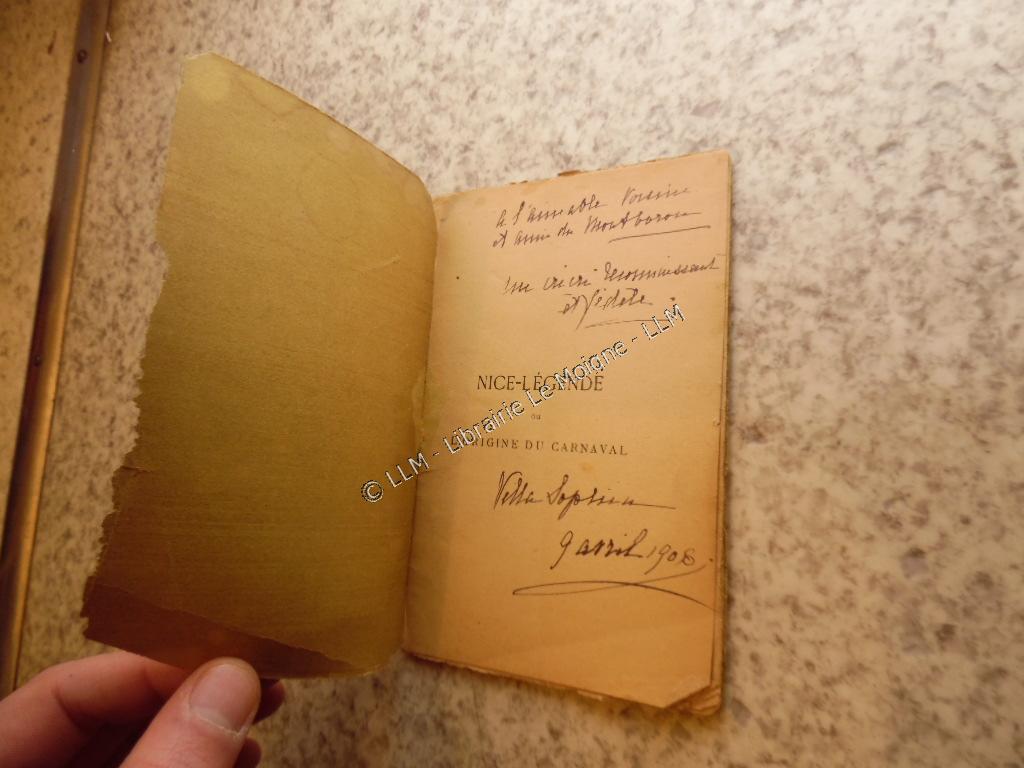 A l'aimable Voisine
et amie du Montboron
un cricri reconnaissant
et fidèle
NICE-LÉGENDE
ou
ORIGINE DU CARNAVAL
© LLM - Librairie Le Moigne - LLM
Villa
9 avril 1908.